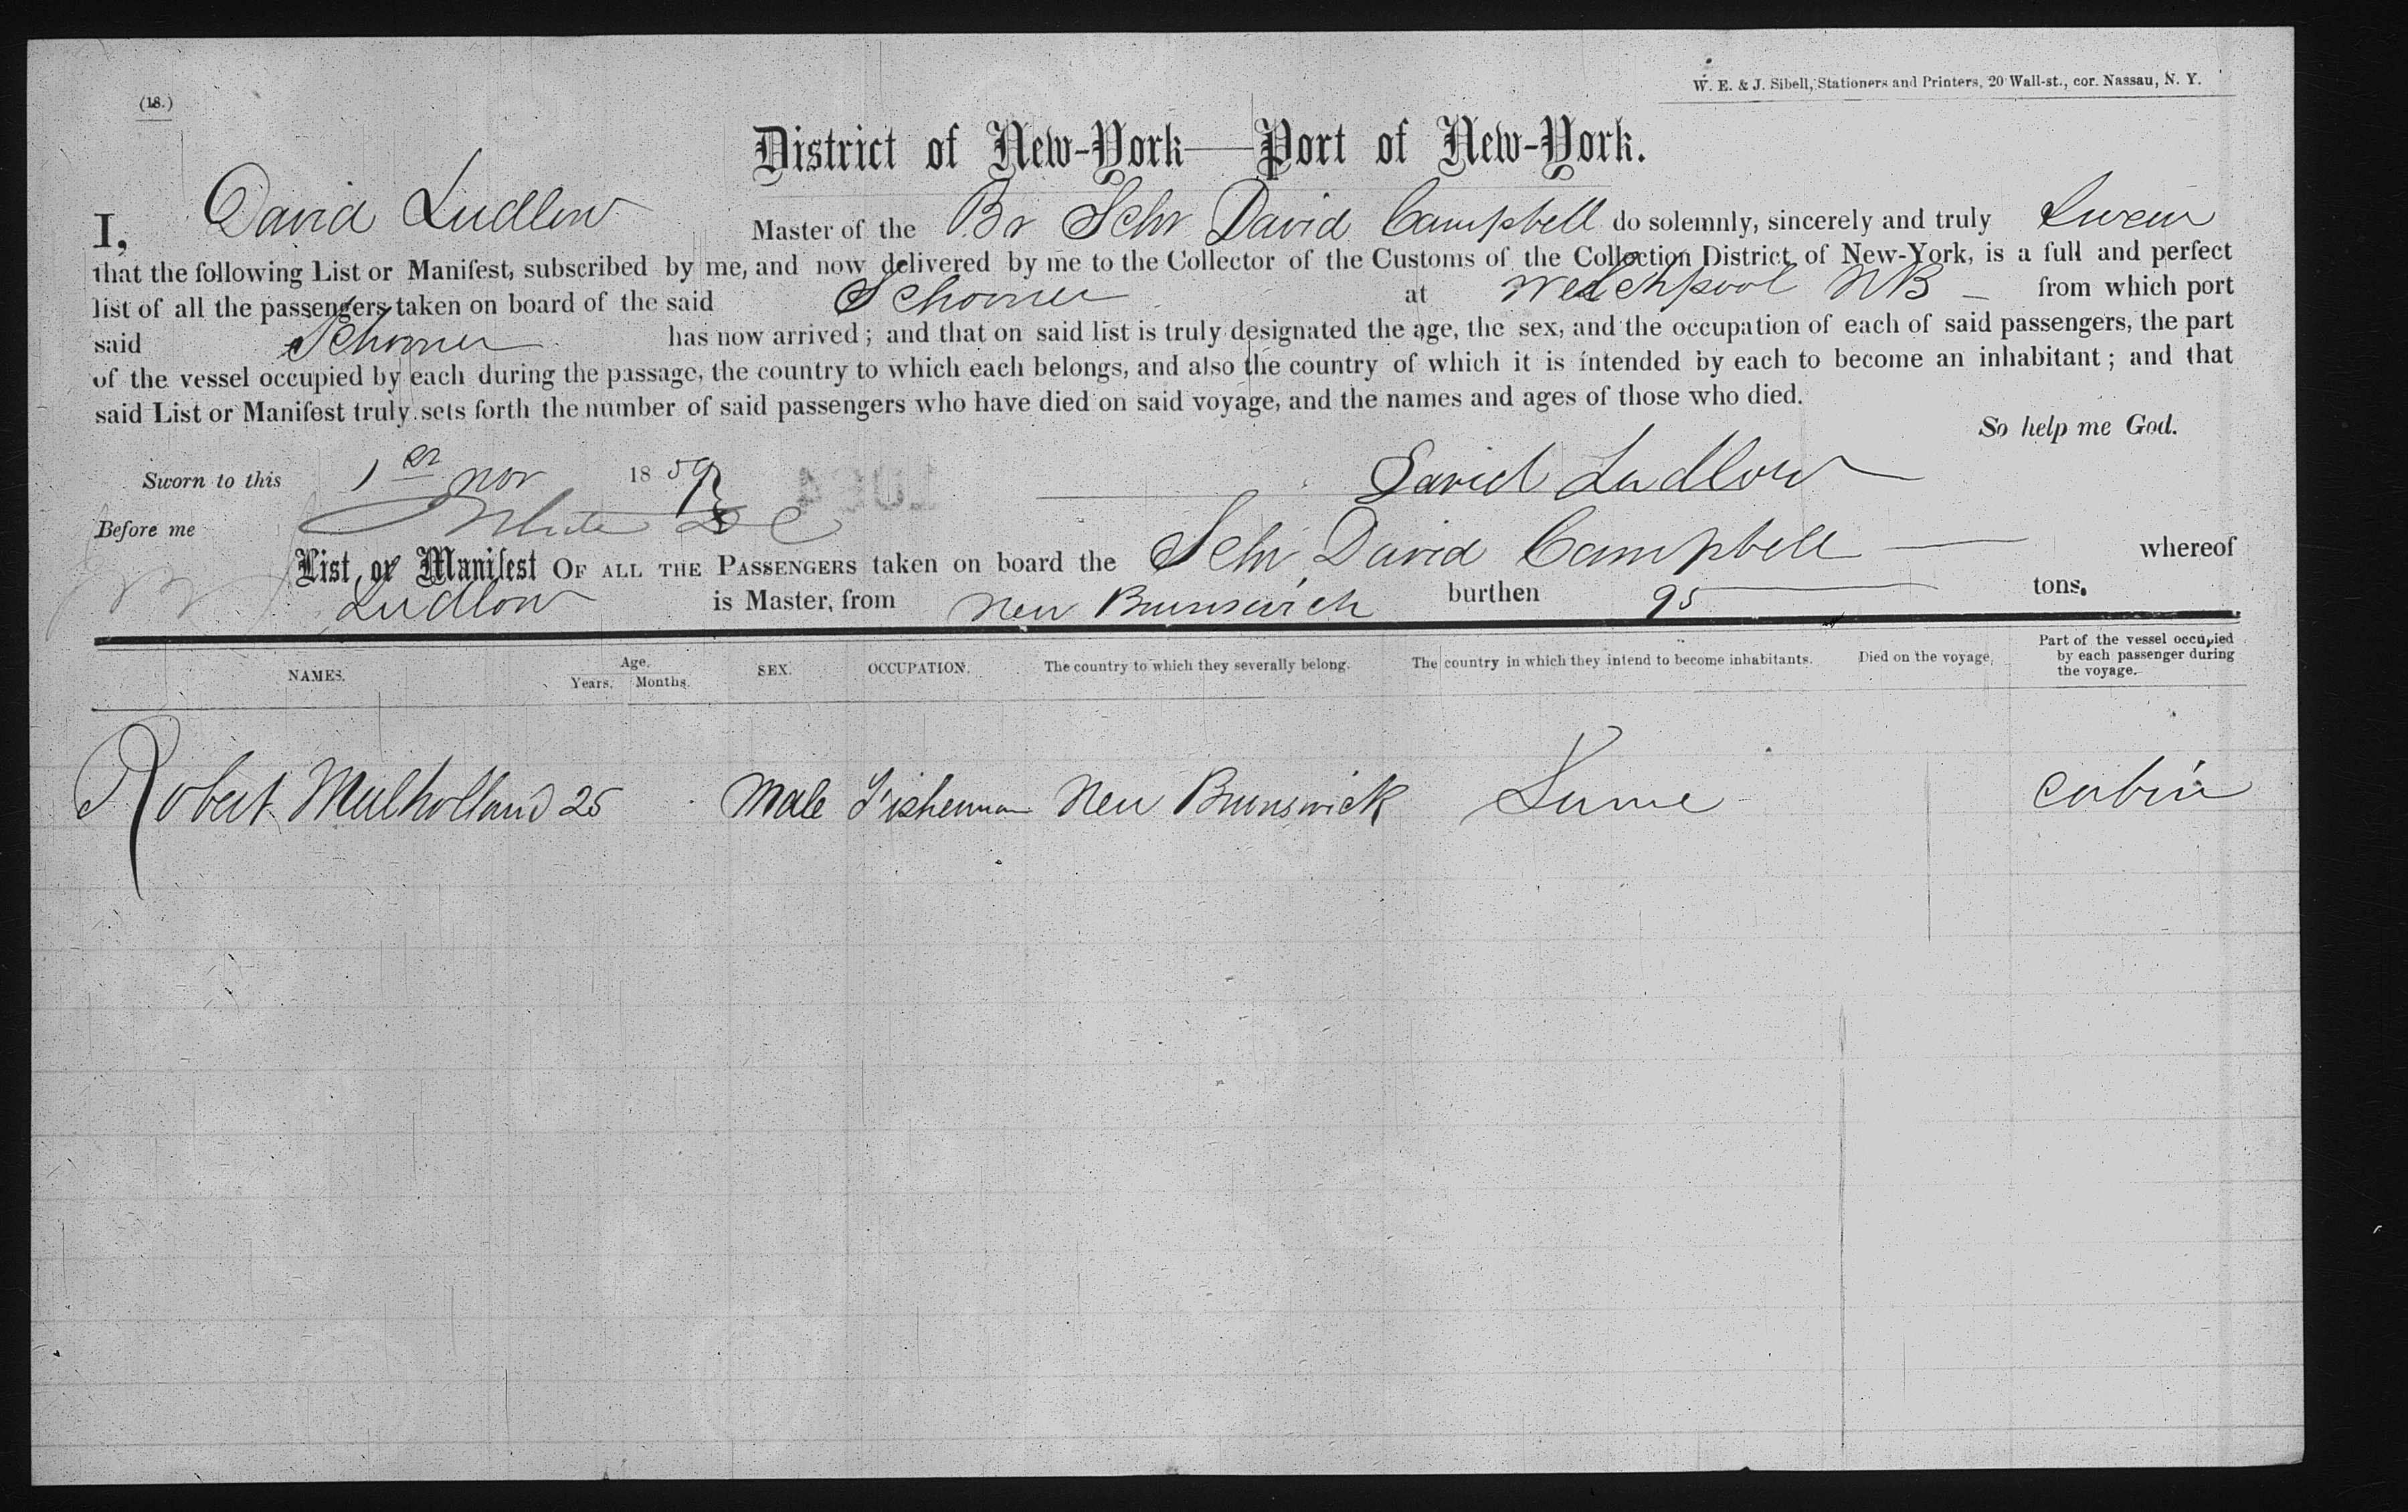 (18.)
W. E. & J. Sibell, Stationers and Printers, 20 Wall-st., cor. Nassau, N. Y.
District of New-York—Port of New-York.
I, David Ludlow Master of the Br Schr David Campbell do solemnly, sincerely and truly Swear
that the following List or Manifest, subscribed by me, and now delivered by me to the Collector of the Customs of the Collection District of New-York, is a full and perfect
list of all the passengers taken on board of the said Schooner at Welchpool NB from which port
said Schooner has now arrived; and that on said list is truly designated the age, the sex, and the occupation of each of said passengers, the part
of the vessel occupied by each during the passage, the country to which each belongs, and also the country of which it is intended by each to become an inhabitant; and that
said List or Manifest truly sets forth the number of said passengers who have died on said voyage, and the names and ages of those who died.
So help me God.
Sworn to this 1 nov 1859 David Ludlow
Before me White D C
List or Manifest OF ALL THE PASSENGERS taken on board the Schr David Campbell whereof
Ludlow is Master, from New Brunswick burthen 95 tons.
NAMES. Age. Years. Months. SEX. OCCUPATION. The country to which they severally belong. The country in which they intend to become inhabitants. Died on the voyage. Part of the vessel occupied by each passenger during the voyage.
Robert Mulholland 25 Male Fisherman New Brunswick Same cabin